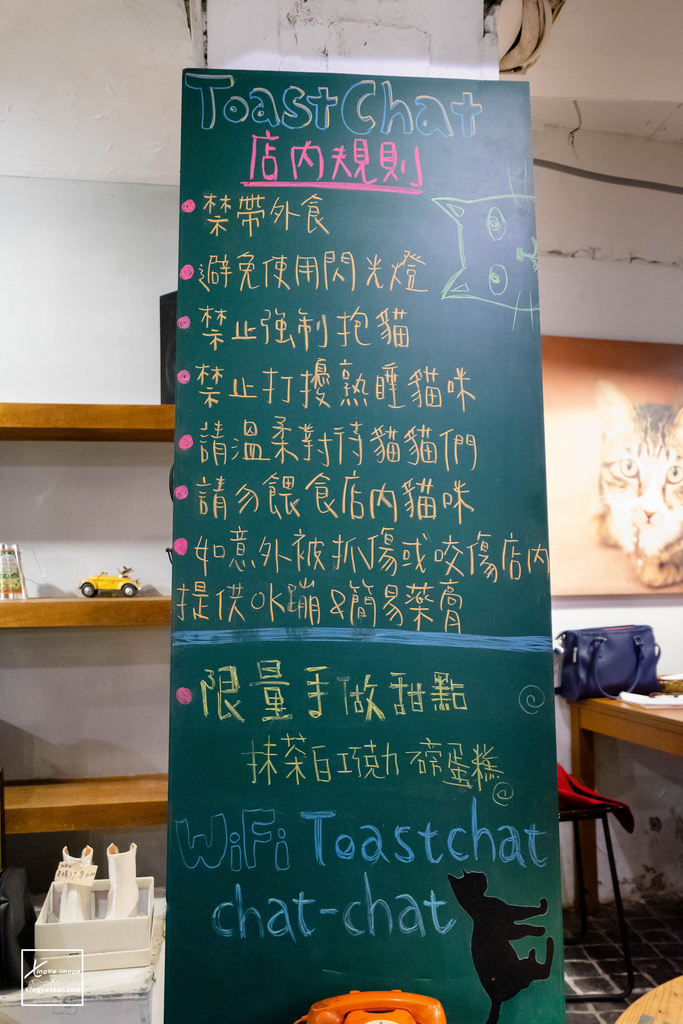 ToastChat
店內規則
禁帶外食
避免使用閃光燈
禁止強制抱貓
禁止打擾熟睡貓咪
請溫柔對待貓貓們
請勿餵食店內貓咪
如意外被抓傷或咬傷店內
提供OK蹦&簡易藥膏
限量手做甜點
抹茶白巧克力磅蛋糕
WiFi Toastchat
chat-chat
XingVe Image